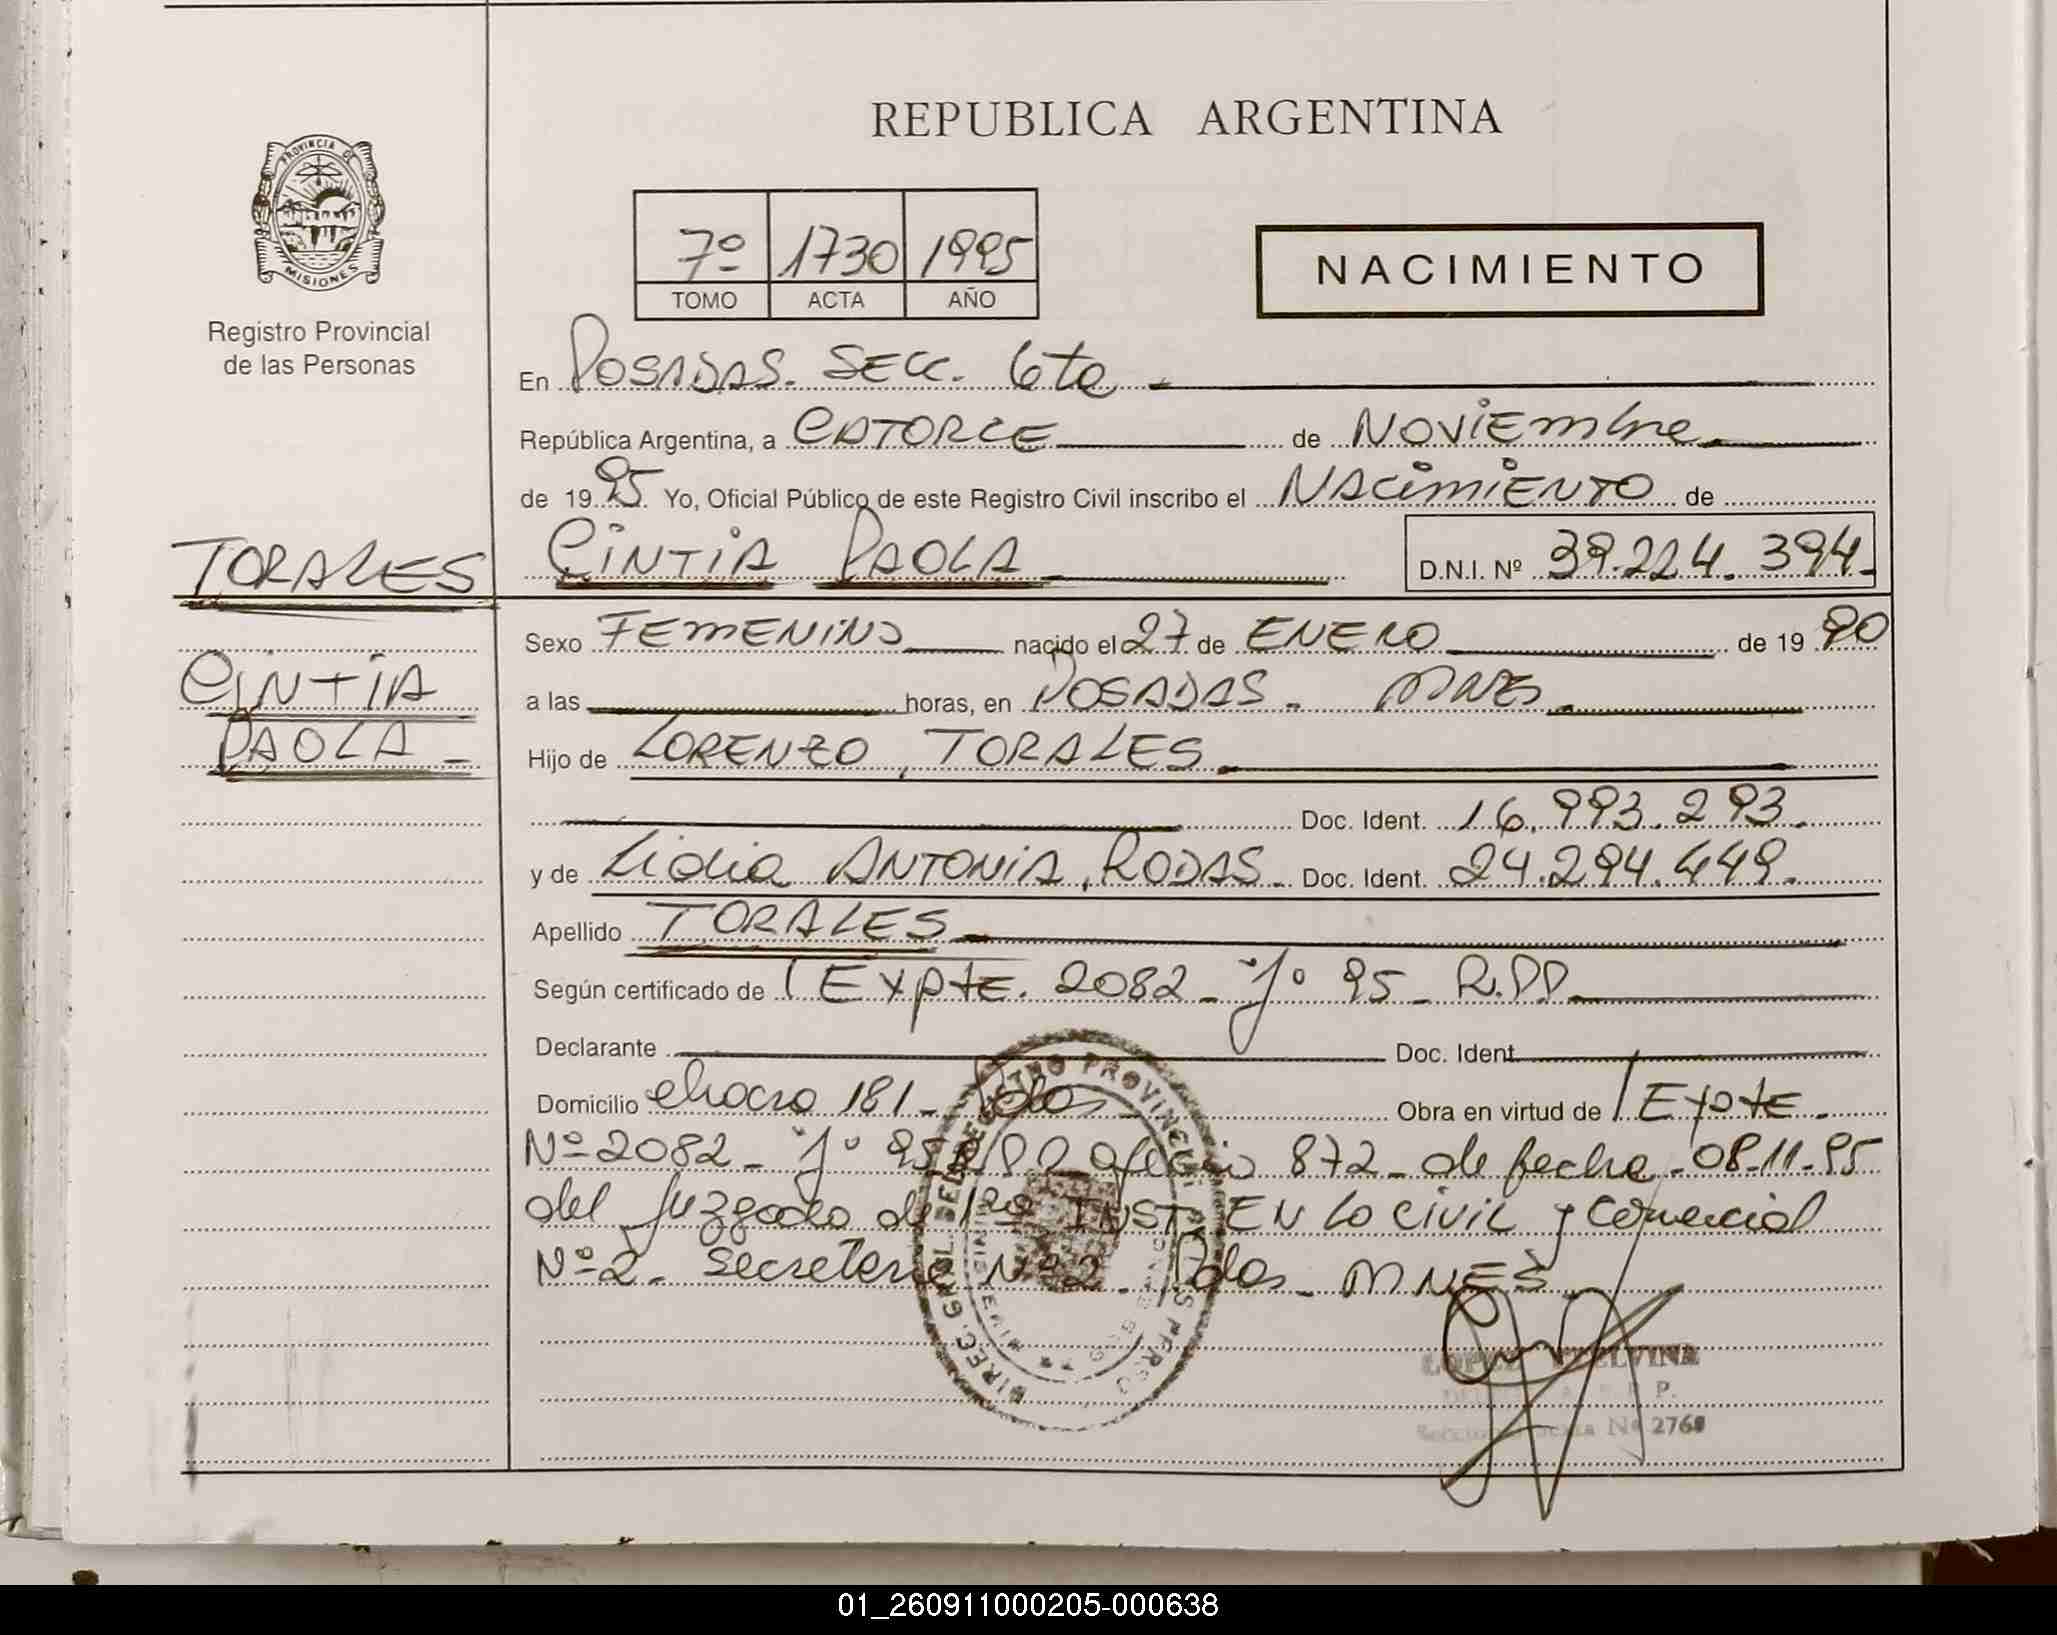 REPUBLICA ARGENTINA
PROVINCIA DE
MISIONES
Registro Provincial
de las Personas
7º 1730 1995
TOMO ACTA AÑO
NACIMIENTO
En POSADAS. SECC. 6ta
República Argentina, a CATORCE de NOVIEMBRE
de 1995 Yo, Oficial Público de este Registro Civil inscribo el NACIMIENTO de
TORALES
CINTIA PAOLA D.N.I. Nº 39.224.394.
Sexo FEMENINO nacido el 27 de ENERO de 1990
CINTIA
a las horas, en POSADAS - MNES
PAOLA -
Hijo de LORENZO, TORALES
Doc. Ident. 16.993.293.
y de Lidia ANTONIA, RODAS - Doc. Ident. 24.294.449.
Apellido TORALES
Según certificado de Expte. 2082 - Jº 95 - R.PP
Declarante Doc. Ident.
Domicilio chacra 181 - Pdas Obra en virtud de Expte.
Nº 2082 - Jº 95 oficio 872 - de fecha - 08.11.95
del Juzgado de 1ra INST. EN LO CIVIL y Comercial
Nº 2 - Secretaria Nº 2 - Pdas - MNES
LOPEZ ETELVINA
Nº 2768
01_260911000205-000638